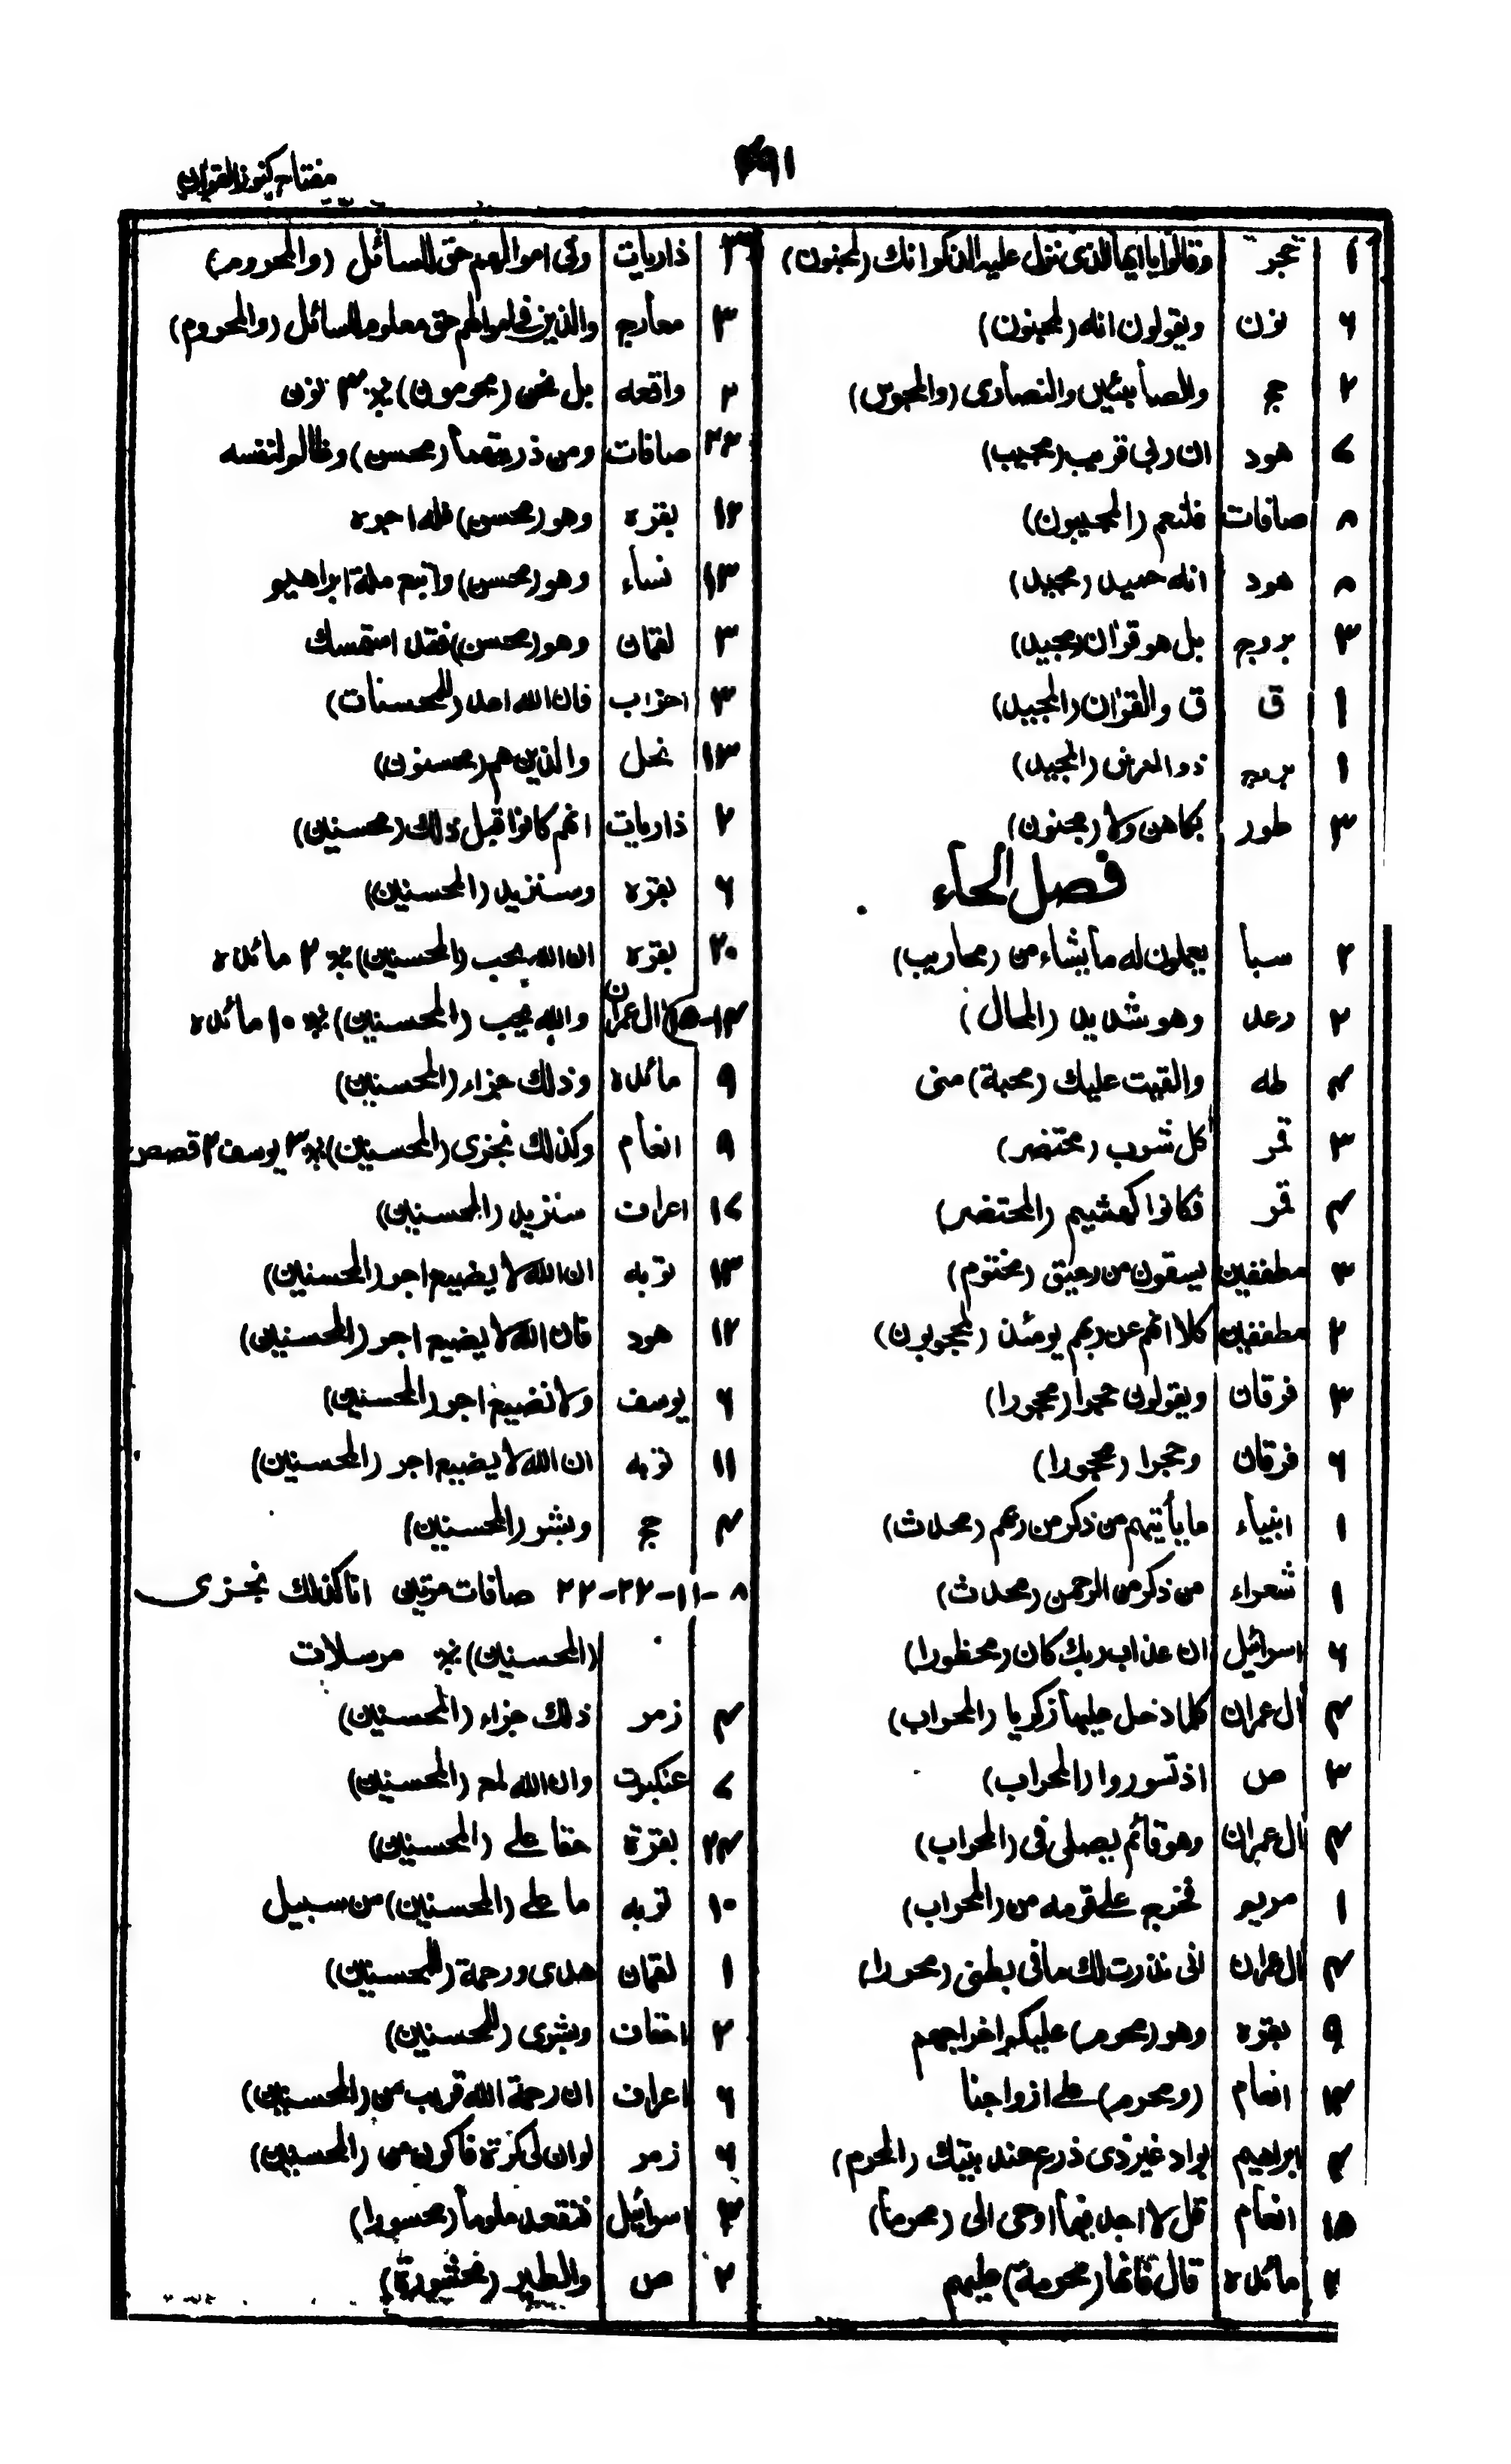 مفتاح كنوز القرآن
۱ حجر وقالوا يا ايها الذى نزل عليه الذكر انك (لمجنون)
۶ نون ويقولون انه (لمجنون)
۲ حج والصابئين والنصارى (والمجوس)
۷ هود ان ربى قريب (مجيب)
۸ صافات فلنعم (المجيبون)
۸ هود انه حميد (مجيد)
۳ بروج بل هو قرآن (مجيد)
۱ ق ق والقرآن (المجيد)
۱ بروج ذو العرش (المجيد)
۳ طور بكاهن ولا (مجنون)
فصل الحاء
۲ سبأ يعملون له ما يشاء من (محاريب)
۲ رعد وهو شديد (المحال)
۴ طه والقيت عليك (محبة) منى
۳ قمر كل شرب (محتضر)
۴ قمر فكانوا كهشيم (المحتضر)
۳ مطففين يسقون من رحيق (مختوم)
۲ مطففين كلا انهم عن ربهم يومئذ (لمحجوبون)
۳ فرقان ويقولون حجرا (محجورا)
۶ فرقان وحجرا (محجورا)
۱ انبياء ما يأتيهم من ذكر من ربهم (محدث)
۱ شعراء من ذكر من الرحمن (محدث)
۶ اسرائيل ان عذاب ربك كان (محظورا)
۴ آل عمران كلما دخل عليها زكريا (المحراب)
۳ ص اذ تسوروا (المحراب)
۴ آل عمران وهو قائم يصلى فى (المحراب)
۱ مريم فخرج على قومه من (المحراب)
۴ آل عمران انى نذرت لك ما فى بطنى (محررا)
۹ بقره وهو (محرم) عليكم اخراجهم
انعام (ومحرم) على ازواجنا
ابراهيم بواد غير ذى ذرع عند بيتك (المحرم)
۱۵ انعام قل لا اجد فيما اوحى الى (محرما)
۴ مائده قال فانها (محرمة) عليهم
ذاريات وفى اموالهم حق للسائل (والمحروم)
۳ معارج والذين فى اموالهم حق معلوم للسائل (والمحروم)
۲ واقعه بل نحن (محرمون) ۳ نون
۲۳ صافات ومن ذريتهما (محسن) وظالم لنفسه
۱۲ بقره وهو (محسن) فله اجره
۱۳ نساء وهو (محسن) واتبع ملة ابراهيم
۳ لقمان وهو (محسن) فقد استمسك
۳ احزاب فان الله اعد (للمحسنات)
۱۳ نحل والذين هم (محسنون)
۲ ذاريات انهم كانوا قبل ذلك (محسنين)
۶ بقره وسنزيد (المحسنين)
۲۰ بقره ان الله يحب (المحسنين) ۲ مائده
۱۴-۱۵ آل عمران والله يحب (المحسنين) ۱۰ مائده
۹ مائده وذلك جزاء (المحسنين)
۹ انعام وكذلك نجزى (المحسنين) ۳ يوسف ۲ قصص
۱۷ اعراف سنزيد (المحسنين)
۱۳ توبه ان الله لا يضيع اجر (المحسنين)
۱۲ هود فان الله لا يضيع اجر (المحسنين)
۶ يوسف ولا نضيع اجر (المحسنين)
۱۱ توبه ان الله لا يضيع اجر (المحسنين)
۴ حج وبشر (المحسنين)
۸-۱۱-۲۲-۲۲ صافات مرتين انا كذلك نجزى
(المحسنين) مرسلات
۴ زمر ذلك جزاء (المحسنين)
۷ عنكبوت وان الله لمع (المحسنين)
۲۴ بقرة حقا على (المحسنين)
۱۰ توبه ما على (المحسنين) من سبيل
۱ لقمان هدى ورحمة (للمحسنين)
۲ احقاف وبشرى (للمحسنين)
۶ اعراف ان رحمة الله قريب من (المحسنين)
۶ زمر لو ان لى كرة فاكون من (المحسنين)
۳ اسرائيل فتقعد ملوما (محسورا)
۲ ص والطير (محشورة)